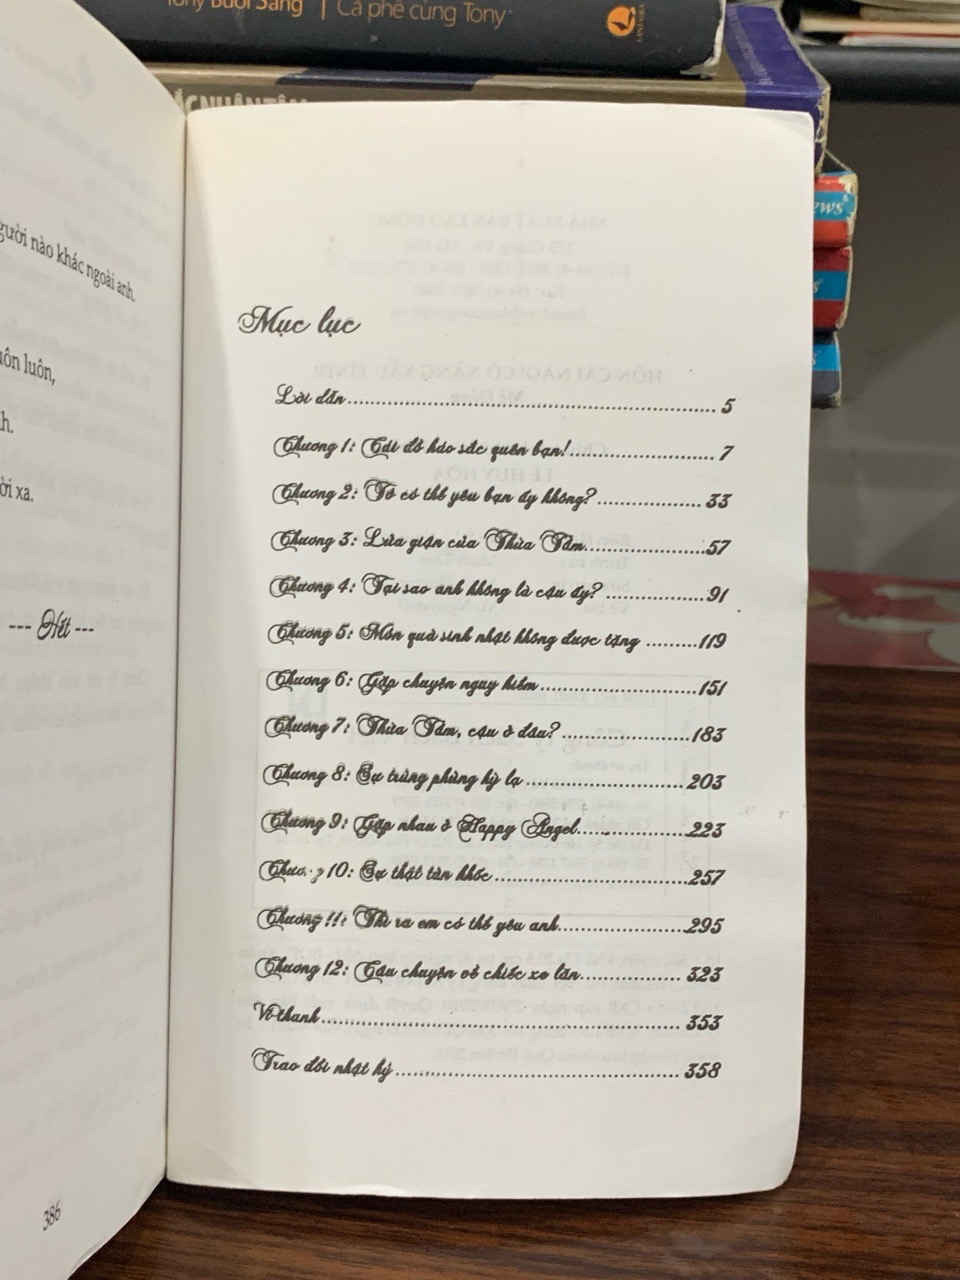 Tony Buổi Sáng | Cà phê cùng Tony
ĐẮC NHÂN TÂM
ews
gười nào khác ngoài anh.
uôn luôn,
nh.
ời xa.
--- Hết ---
386
Mục lục
Lời dẫn .......... 5
Chương 1: Cái đồ háo sắc quên bạn! .......... 7
Chương 2: Tớ có thể yêu bạn ấy không? .......... 33
Chương 3: Lửa giận của Thừa Tâm .......... 57
Chương 4: Tại sao anh không là cậu ấy? .......... 91
Chương 5: Món quà sinh nhật không được tặng .......... 119
Chương 6: Gặp chuyện nguy hiểm .......... 151
Chương 7: Thừa Tâm, cậu ở đâu? .......... 183
Chương 8: Sự trùng phùng kỳ lạ .......... 203
Chương 9: Gặp nhau ở Happy Angel .......... 223
Chương 10: Sự thật tàn khốc .......... 257
Chương 11: Thì ra em có thể yêu anh .......... 295
Chương 12: Câu chuyện về chiếc xe lăn .......... 323
Vĩ thanh .......... 353
Trao đổi nhật ký .......... 358